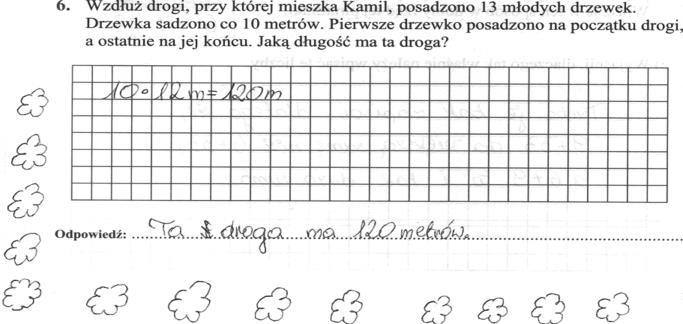 6. Wzdłuż drogi, przy której mieszka Kamil, posadzono 13 młodych drzewek.
Drzewka sadzono co 10 metrów. Pierwsze drzewko posadzono na początku drogi,
a ostatnie na jej końcu. Jaką długość ma ta droga?
10 • 12 m = 120 m
Odpowiedź: Ta droga ma 120 metrów.